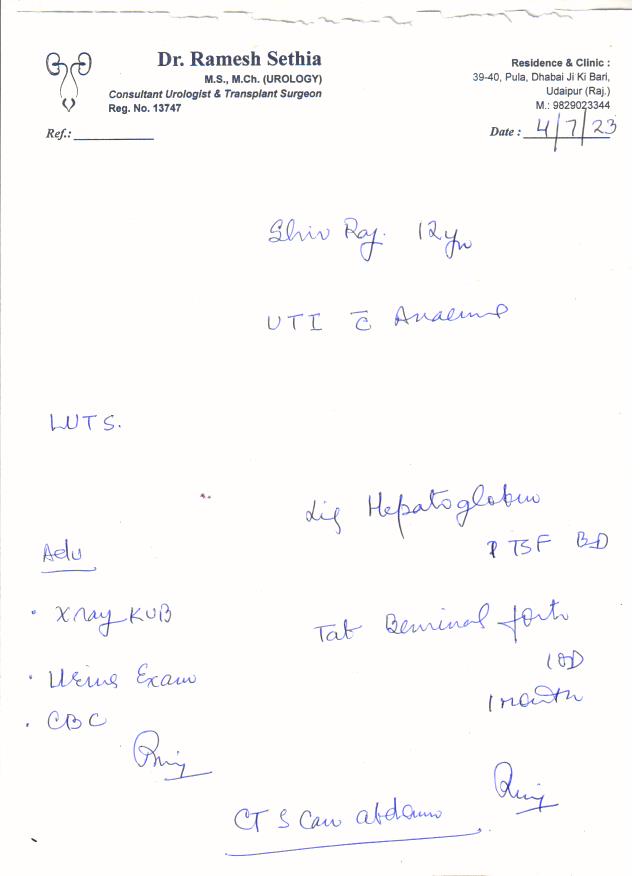 Dr. Ramesh Sethia
M.S., M.Ch. (UROLOGY)
Consultant Urologist & Transplant Surgeon
Reg. No. 13747
Ref.:
Residence & Clinic :
39-40, Pula, Dhabai Ji Ki Bari,
Udaipur (Raj.)
M.: 9829023344
Date : 4/7/23
Shiv Raj. 12yr
UTI c̄ Anaemia
LUTS.
Liq Hepatoglobin
1 TSF BD
Adv
• Xray KUB
Tab Beminal forte
1 OD
• Urine Exam
1 month
• CBC
CT Scan abdomen